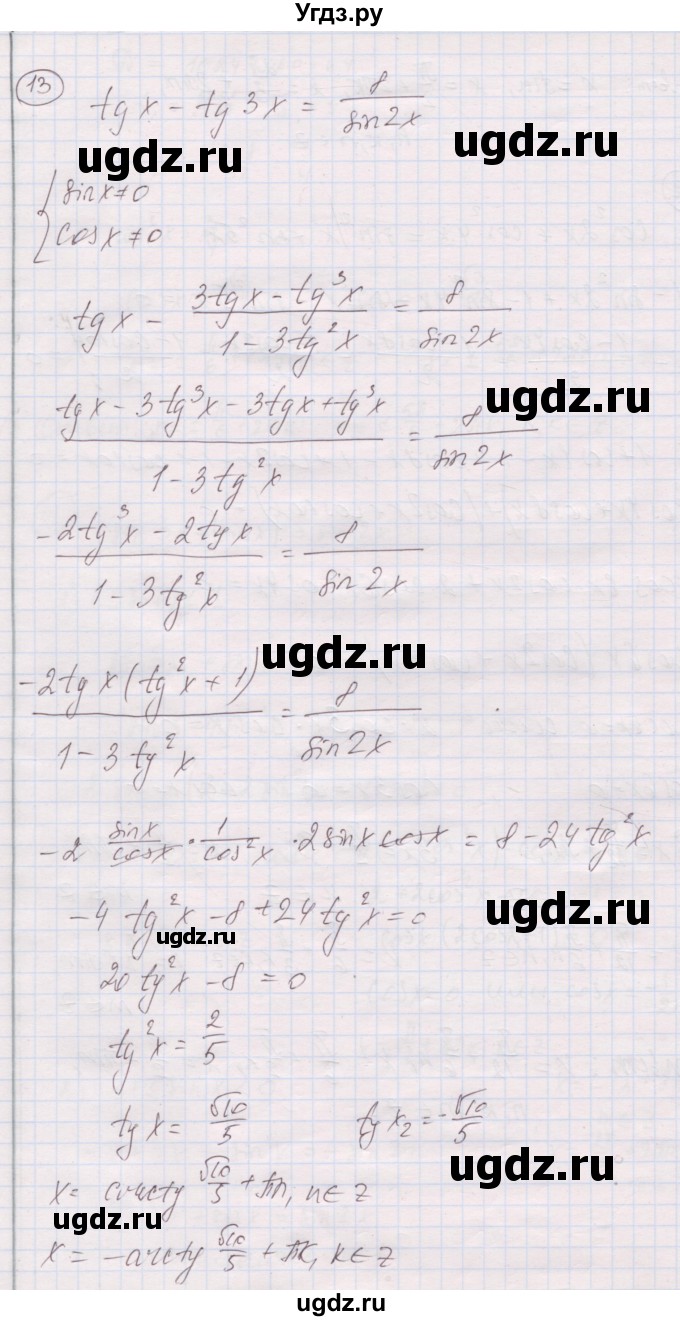 Угдз.ру
13
tg x - tg 3x = 8/sin2x
ugdz.ru ugdz.ru
{ sin x ≠ 0
cos x ≠ 0
tg x - (3tg x - tg³x)/(1 - 3tg²x) = 8/sin2x
ugdz.ru
(tg x - 3tg³x - 3tg x + tg³x)/(1 - 3tg²x) = 8/sin2x
(-2tg³x - 2tg x)/(1 - 3tg²x) = 8/sin2x
ugdz.ru
(-2tg x (tg²x + 1))/(1 - 3tg²x) = 8/sin2x
-2 sinx/cosx · 1/cos²x · 2sinx cosx = 8 - 24tg²x
-4tg²x - 8 + 24tg²x = 0
ugdz.ru ugdz.ru
20tg²x - 8 = 0
tg²x = 2/5
tg x = √10/5 tg x₂ = -√10/5
x = arctg √10/5 + πn, n ∈ Z
ugdz.ru ugdz.ru
x = -arctg √10/5 + πk, k ∈ Z
ugdz.ru